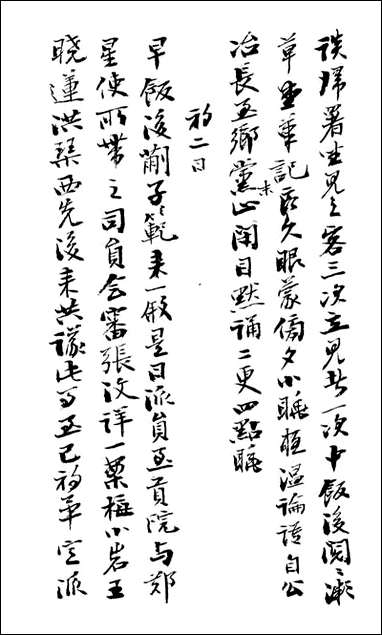 談歸署坐見之客三次立見者一次中飯後閱
草坐筆記 久眼蒙傍夕小睡夜溫論語自公
冶長至鄉黨未止閉目默誦二更四點睡
初二日
早飯後蒯子範來一敘是日派員至貢院與鄭
星使所帶之司員會審張汶詳一案梅小岩王
曉蓮洪琴西先後來共議此事至巳初畢定派